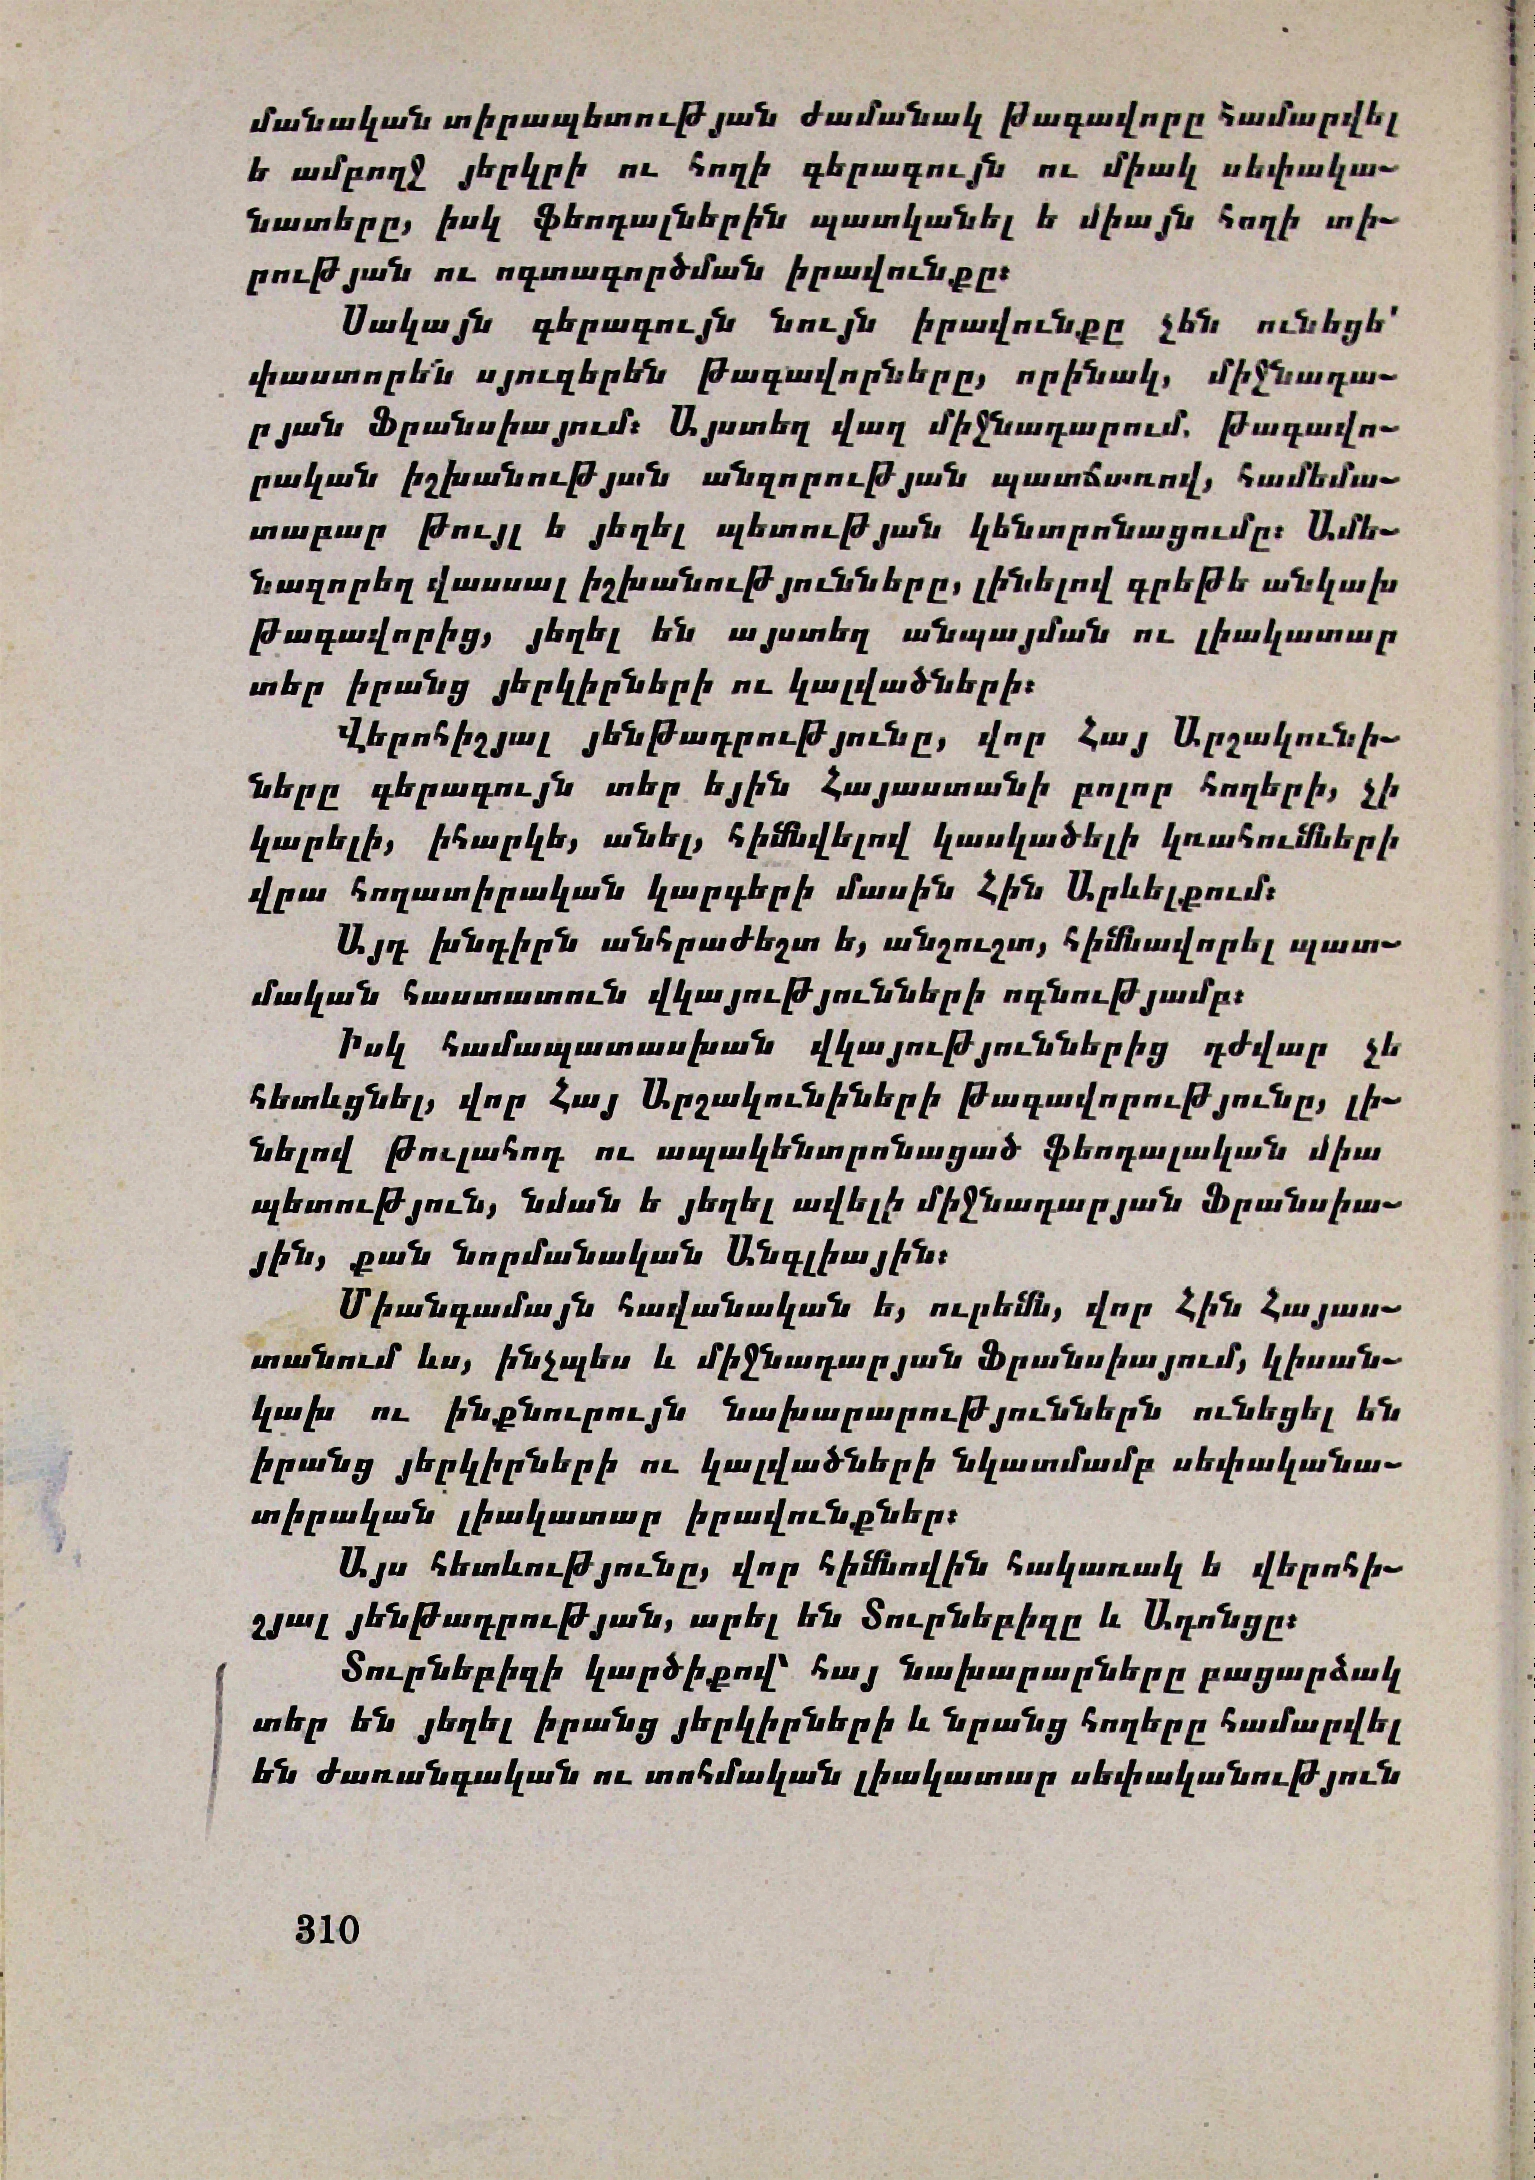 մանական տիրապետության ժամանակ թագավորը համարվել
ե ամբողջ յերկրի ու հողի գերագույն ու միակ սեփակա-
նատերը, իսկ ֆեոդալներին պատկանել ե միայն հողի տի-
րության ու ոգտագործման իրավունքը։
Սակայն գերագույն նույն իրավունքը չեն ունեցե՛
փաստորեն սյուզերեն թագավորները, որինակ, միջնադա-
րյան Ֆրանսիայում։ Այստեղ վաղ միջնադարում. թագավո-
րական իշխանության անզորության պատճառով, համեմա-
տաբար թույլ ե յեղել պետության կենտրոնացումը։ Ամե-
նազորեղ վասսալ իշխանությունները, լինելով գրեթե անկախ
թագավորից, յեղել են այստեղ անպայման ու լիակատար
տեր իրանց յերկիրների ու կալվածների։
Վերոհիշյալ յենթադրությունը, վոր Հայ Արշակունի-
ները գերագույն տեր եյին Հայաստանի բոլոր հողերի, չի
կարելի, իհարկե, անել, հիմնվելով կասկածելի կռահումների
վրա հողատիրական կարգերի մասին Հին Արևելքում։
Այդ խնդիրն անհրաժեշտ ե, անշուշտ, հիմնավորել պատ-
մական հաստատուն վկայությունների ոգնությամբ։
Իսկ համապատասխան վկայություններից դժվար չե
հետևցնել, վոր Հայ Արշակունիների թագավորությունը, լի-
նելով թուլահոդ ու ապակենտրոնացած ֆեոդալական միա
պետություն, նման ե յեղել ավելի միջնադարյան Ֆրանսիա-
յին, քան նորմանական Անգլիային։
Միանգամայն հավանական ե, ուրեմն, վոր Հին Հայաս-
տանում ևս, ինչպես և միջնադարյան Ֆրանսիայում, կիսան-
կախ ու ինքնուրույն նախարարություններն ունեցել են
իրանց յերկիրների ու կալվածների նկատմամբ սեփականա-
տիրական լիակատար իրավունքներ։
Այս հետևությունը, վոր հիմնովին հակառակ ե վերոհի-
շյալ յենթադրության, արել են Տուրնեբիզը և Ադոնցը։
Տուրնեբիզի կարծիքով՝ հայ նախարարները բացարձակ
տեր են յեղել իրանց յերկիրների և նրանց հողերը համարվել
են ժառանգական ու տոհմական լիակատար սեփականություն
310